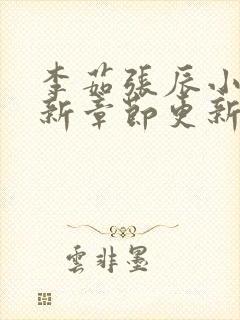 李茹張辰小
新章節更新
雲非墨